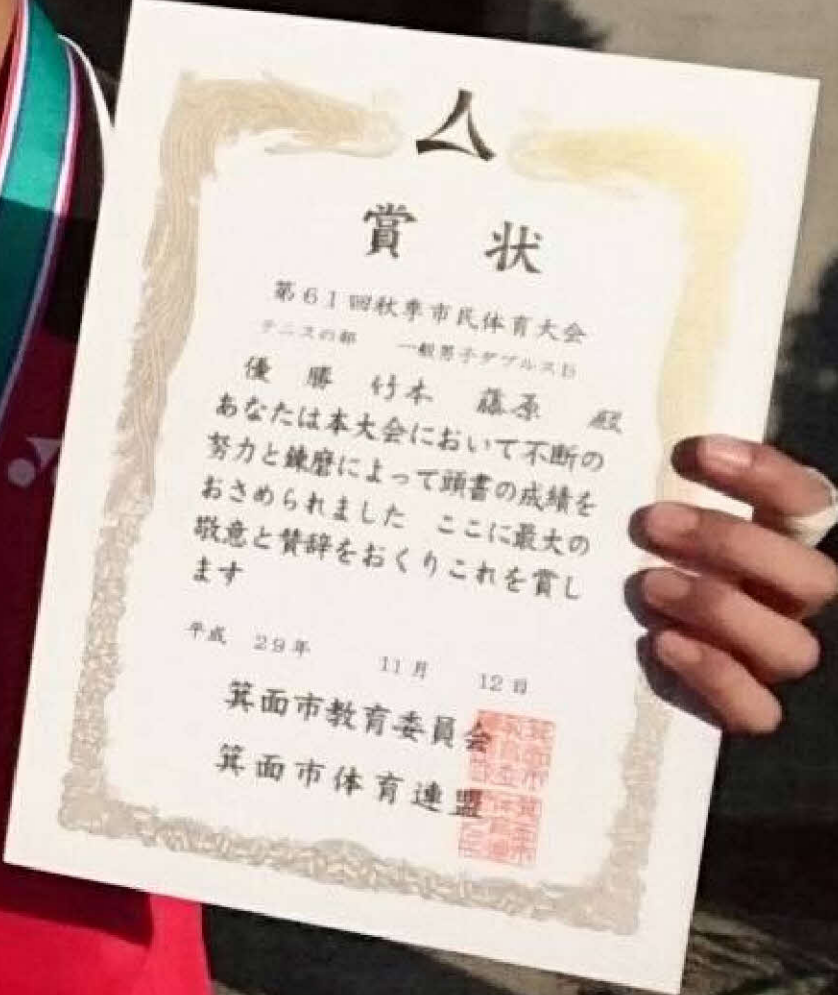 賞 状
第61回秋季市民体育大会
テニスの部 一般男子ダブルスB
優 勝 竹本 藤原 殿
あなたは本大会において不断の
努力と錬磨によって頭書の成績を
おさめられました ここに最大の
敬意と賛辞をおくりこれを賞し
ます
平成 29年 11月 12日
箕面市教育委員会
箕面市体育連盟